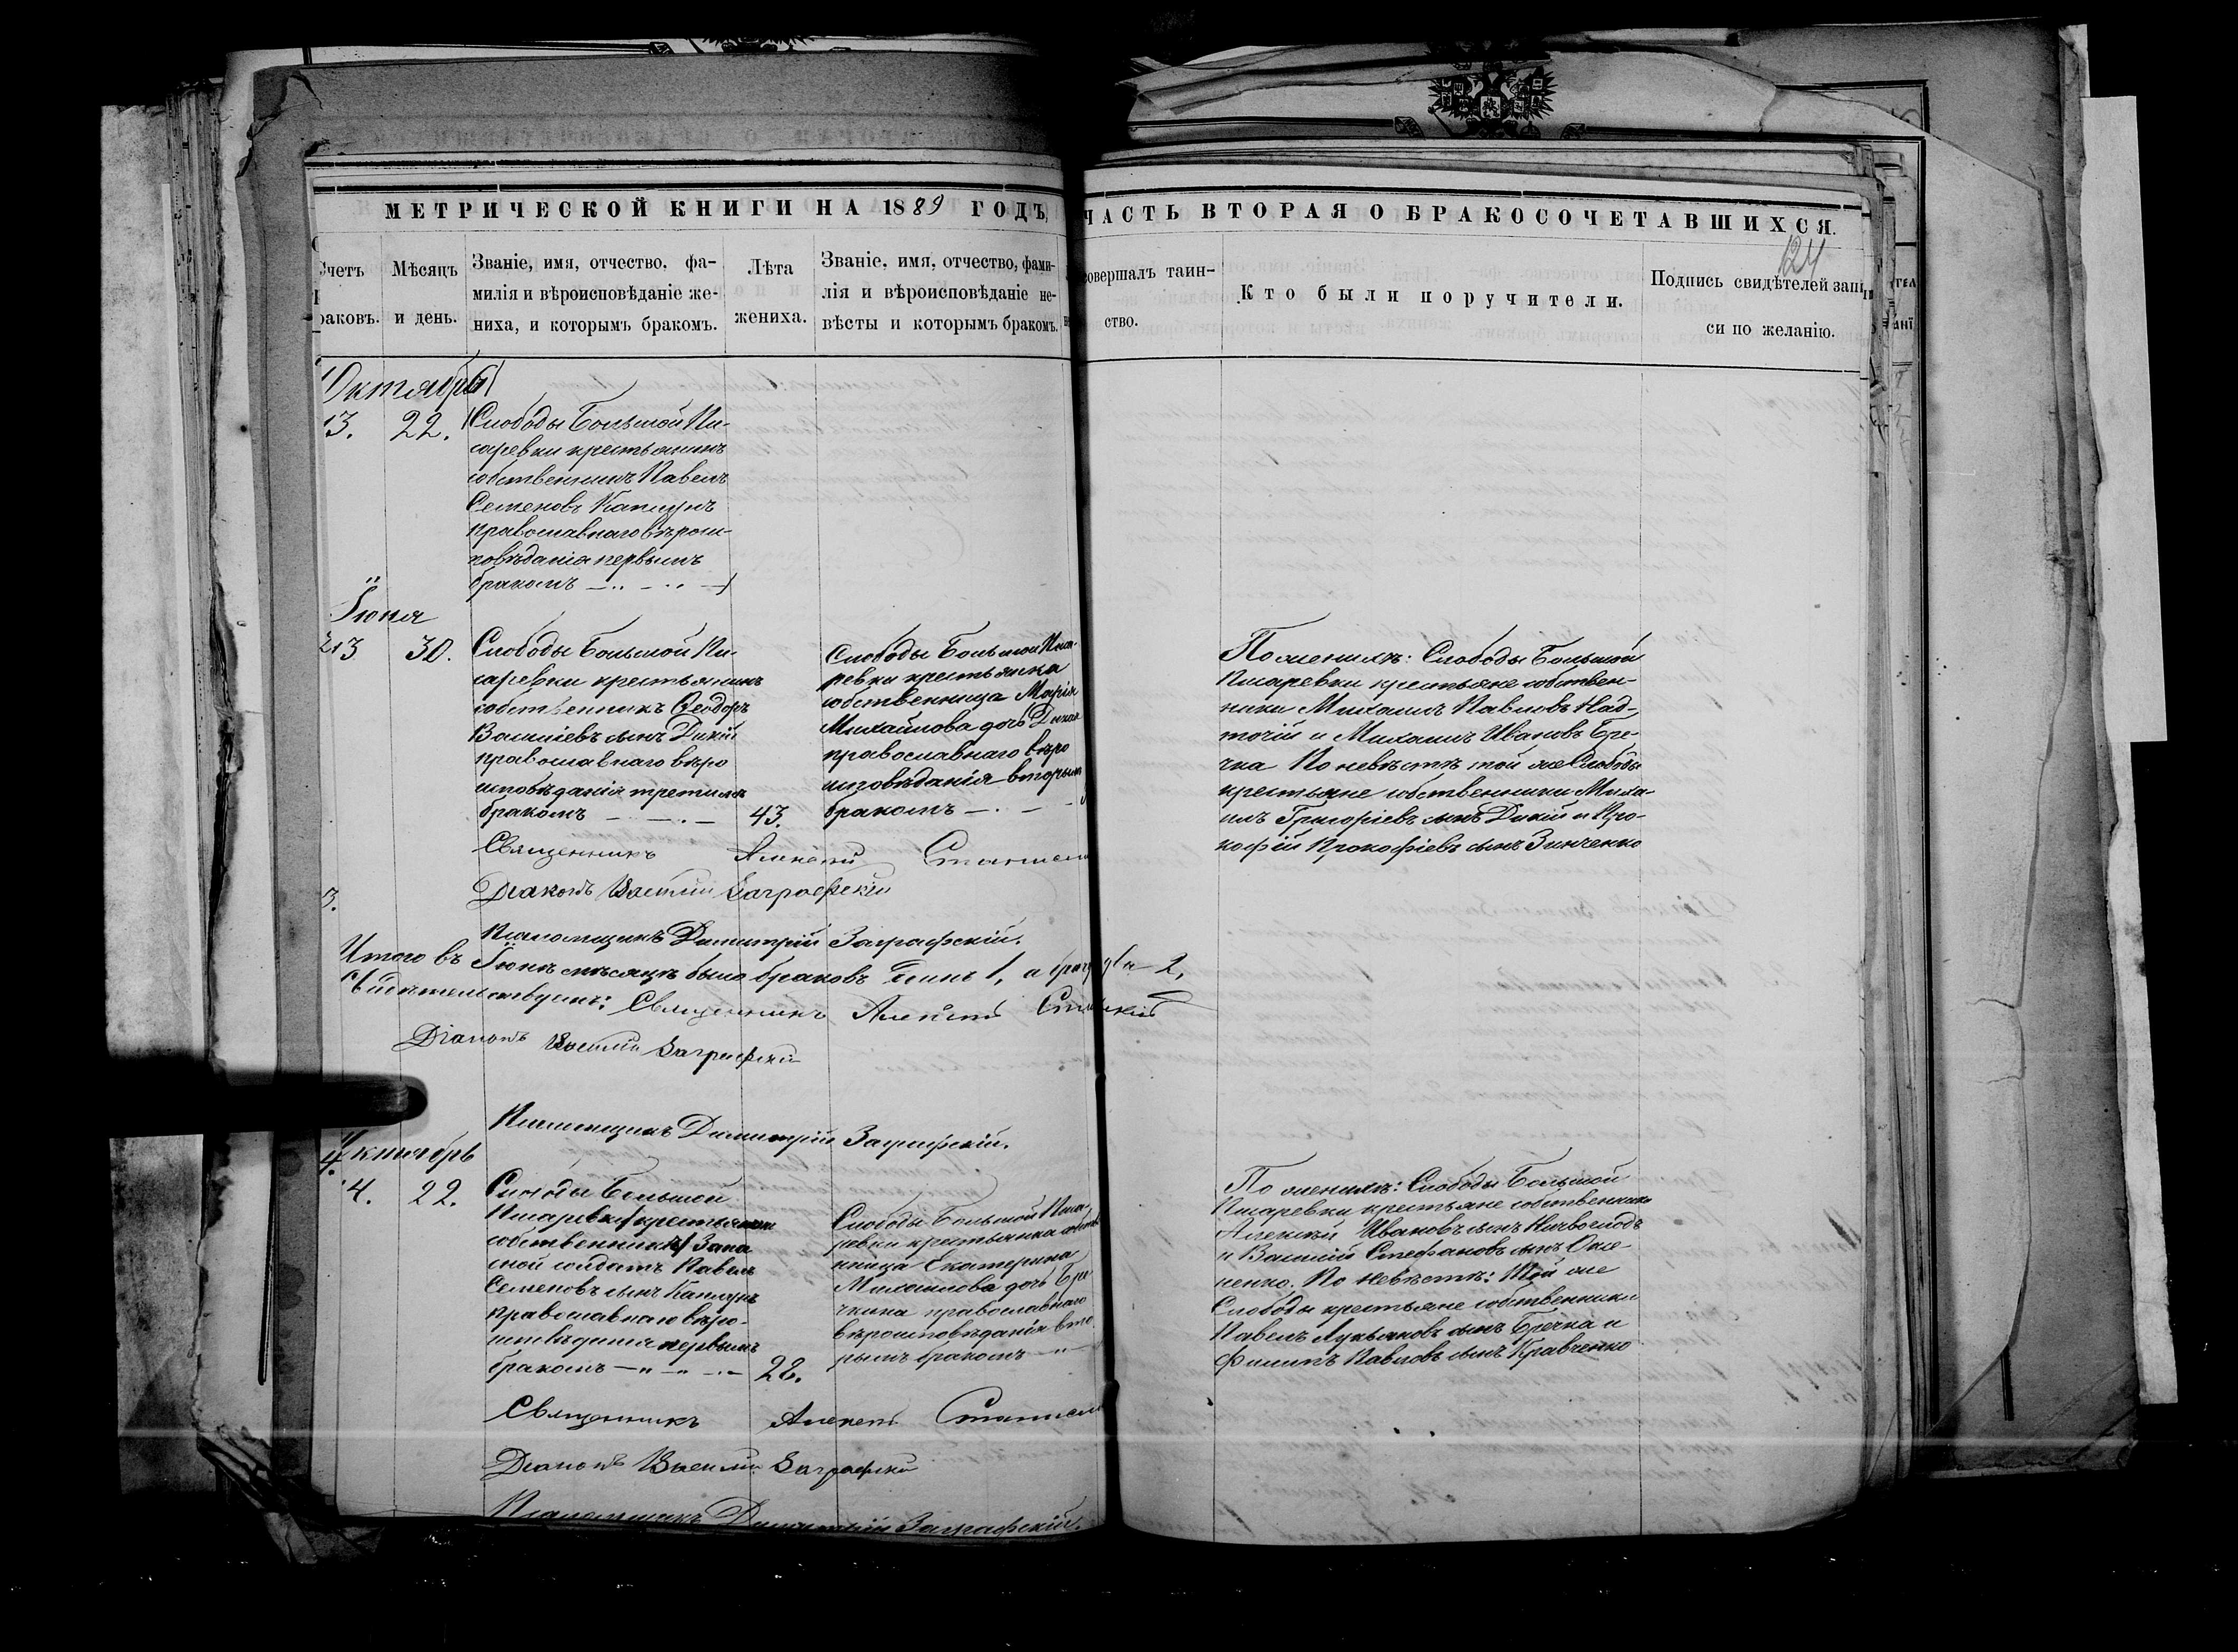 МЕТРИЧЕСКОЙ КНИГИ НА 1889 ГОДЪ,
ЧАСТЬ ВТОРАЯ О БРАКОСОЧЕТАВШИХСЯ.
124
Счетъ
раковъ.
Мѣсяцъ
и день.
Званіе, имя, отчество, фа-
милія и вѣроисповѣданіе же-
ниха, и которымъ бракомъ.
Лѣта
жениха.
Званіе, имя, отчество, фами-
лія и вѣроисповѣданіе не-
вѣсты и которымъ бракомъ.
совершалъ таин-
ство.
Кто были поручители.
Подпись свидѣтелей запи
си по желанію.
Октябрь
13. 22.
Слободы Большой Пи-
саревки крестьянинъ
собственникъ Павелъ
Семеновъ Капшукъ
православнаго вѣроис-
повѣданія первымъ
бракомъ
Іюня
30.
Слободы Большой Пи-
саревки крестьянинъ
собственникъ Ѳеодоръ
Василіевъ сынъ Дикій
православнаго вѣро
исповѣданія третимъ
бракомъ
43.
Слободы Большой Писа-
ревки крестьянка
собственница Марія
Михайлова дочь Дикая
православнаго вѣро
исповѣданія вторымъ
бракомъ
По женихѣ: Слободы Большой
Писаревки крестьяне собствен-
ники Михаилъ Павловъ Над-
точій и Михаилъ Ивановъ Бре-
чка По невѣстѣ той же Слободы
крестьяне собственники Миха-
илъ Григоріевъ сынъ Дикій и Про-
кофій Прокофіевъ сынъ Зинченко
Священникъ Алексій
Діаконъ Василій Заграфскій
3.
Псаломщикъ Димитрій Заграфскій.
Итого въ Іюнѣ мѣсяцѣ было браковъ одинъ 1, а два 2.
Свидѣтельствуемъ: Священникъ Алексій
Діаконъ Василій Заграфскій
Псаломщикъ Димитрій Заграфскій.
Октябрь
4. 22.
Слободы Большой
Писаревки крестьянинъ
собственникъ Запа
сной солдатъ Павелъ
Семеновъ сынъ Капшукъ
православнаго вѣро-
исповѣданія первымъ
бракомъ
28.
Слободы Большой Писа-
ревки крестьянка собстве
нница Екатерина
Михаилова дочь Бре
чкина православнаго
вѣроисповѣданія вто
рымъ бракомъ
По женихѣ: Слободы Большой
Писаревки крестьяне собственники
Алексій Ивановъ сынъ
и Василій Стефановъ сынъ
По невѣстѣ: Той же
Слободы крестьяне собственники
Павелъ Лукьяновъ сынъ Бречка и
Филипъ Павловъ сынъ Кравченко
Священникъ Алексій
Діаконъ Василій Заграфскій
Псаломщикъ Димитрій Заграфскій.